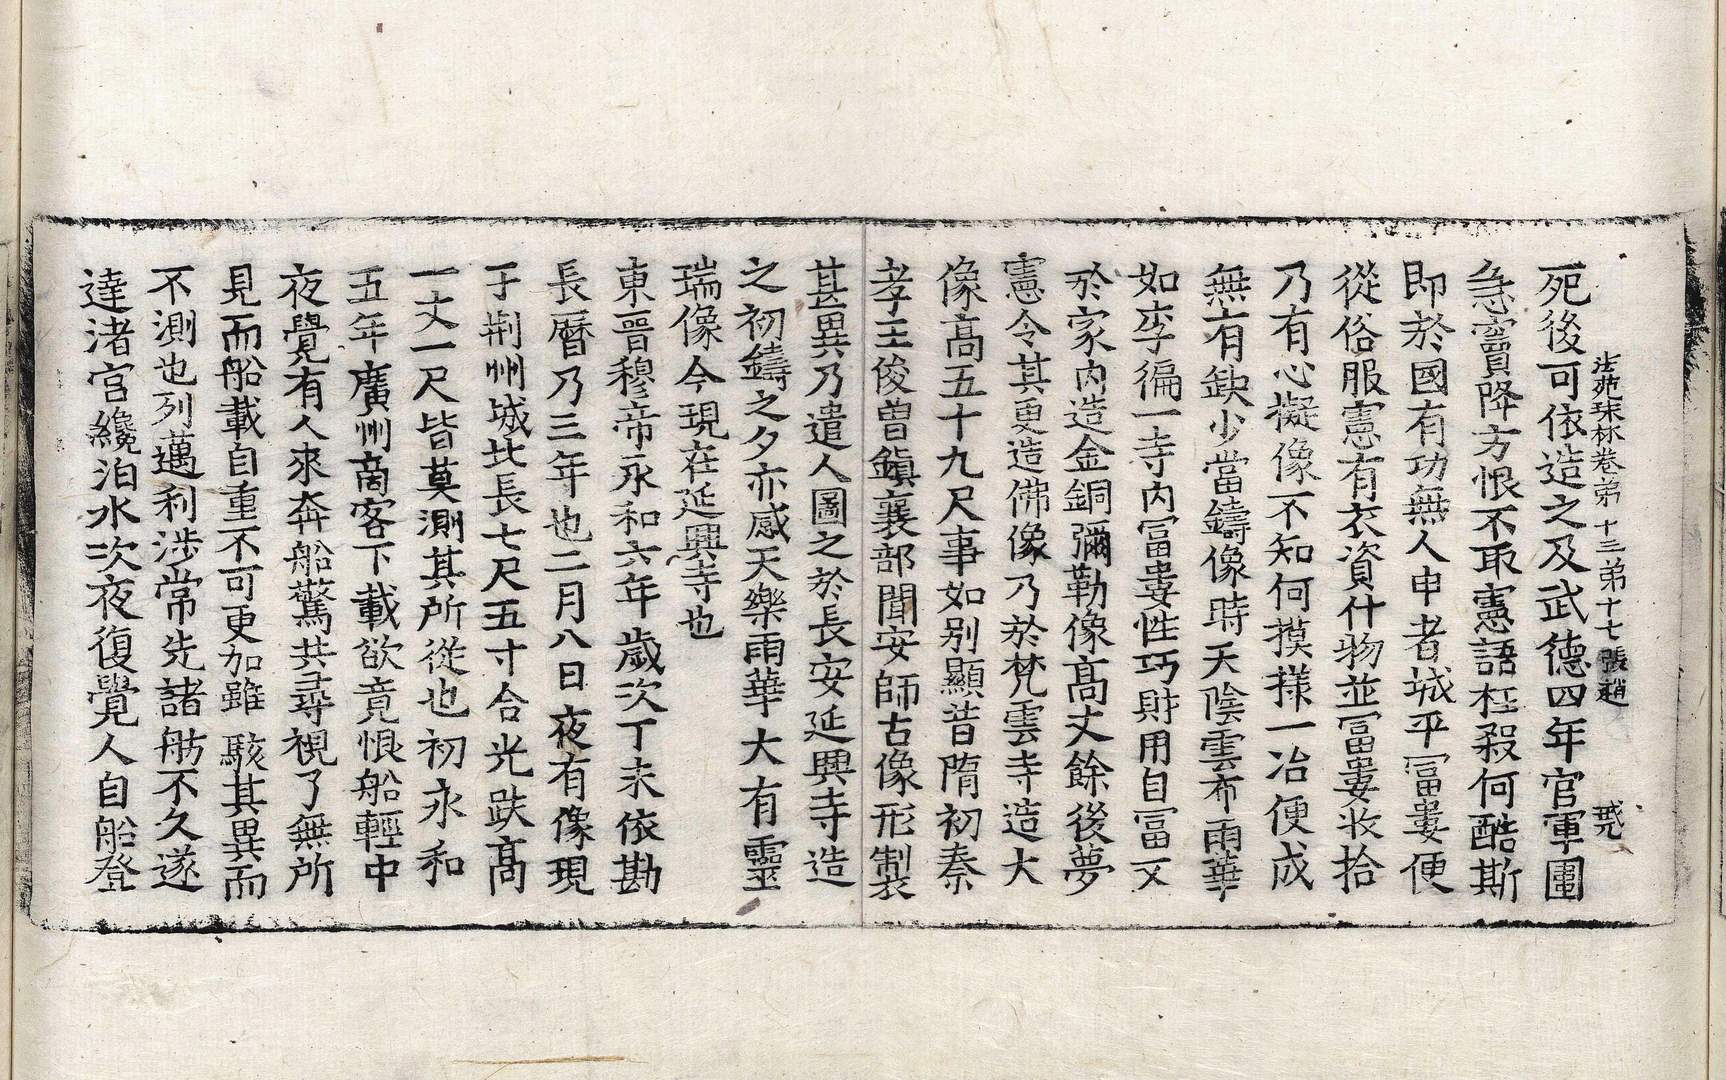 法苑珠林卷第十三第十七張 趙
死後可依造之及武德四年官軍圍
急竇降方恨不取憲語枉殺何酷斯
即於國有功無人申者城平冨婁便
從俗服憲有衣資什物並冨婁收拾
乃有心擬像不知何摸様一冶便成
無有缺少當鑄像時天陰雲布雨華
如李徧一寺内冨婁性巧財用自冨又
於家内造金銅彌勒像高丈餘後夢
憲令其更造佛像乃於梵雲寺造大
像高五十九尺事如别顯昔隋初秦
孝王俊曾鎮襄部聞安師古像形製
甚異乃遣人圖之於長安延興寺造
之初鑄之夕亦感天樂雨華大有靈
瑞像今現在延興寺也
東晉穆帝永和六年歲次丁未依勘
長曆乃三年也二月八日夜有像現
于荆州城北長七尺五寸合光趺高
一丈一尺皆莫測其所從也初永和
五年廣州商客下載欲竟恨船輕中
夜覺有人來奔船驚共尋視了無所
見而船載自重不可更加雖駭其異而
不測也列邁利涉常先諸舫不久遂
達渚宫纔泊水次夜復覺人自船登